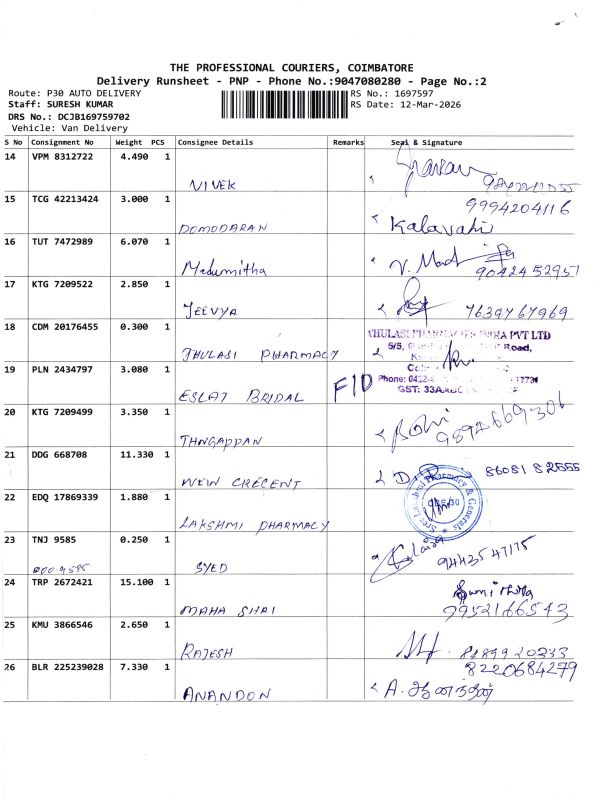 THE PROFESSIONAL COURIERS, COIMBATORE
Delivery Runsheet - PNP - Phone No.:9047080280 - Page No.:2
Route: P30 AUTO DELIVERY
Staff: SURESH KUMAR
DRS No.: DCJB169759702
Vehicle: Van Delivery
RS No.: 1697597
RS Date: 12-Mar-2026
S No Consignment No Weight PCS Consignee Details Remarks Seal & Signature
14 VPM 8312722 4.490 1 VIVEK
15 TCG 42213424 3.000 1 DOMODARAN Kalavathi 9994204116
16 TUT 7472989 6.070 1 Madumitha 9042452951
17 KTG 7209522 2.850 1 JEEVYA 7639767969
18 CDM 20176455 0.300 1 THULASI PHARMACY THULASI PHARMACIES INDIA PVT LTD
19 PLN 2434797 3.080 1 ESLAT BRIDAL FID
20 KTG 7209499 3.350 1 THNGAPPAN
21 DDG 668708 11.330 1 NEW CRECENT 8608182555
22 EDQ 17869339 1.880 1 LAKSHMI PHARMACY
23 TNJ 9585 0.250 1 SYED 9443547175
24 TRP 2672421 15.100 1 MAHA SHRI 9952166543
25 KMU 3866546 2.650 1 RAJESH 8489920333
26 BLR 225239028 7.330 1 ANANDON A. ஆனந்தன் 8220684279